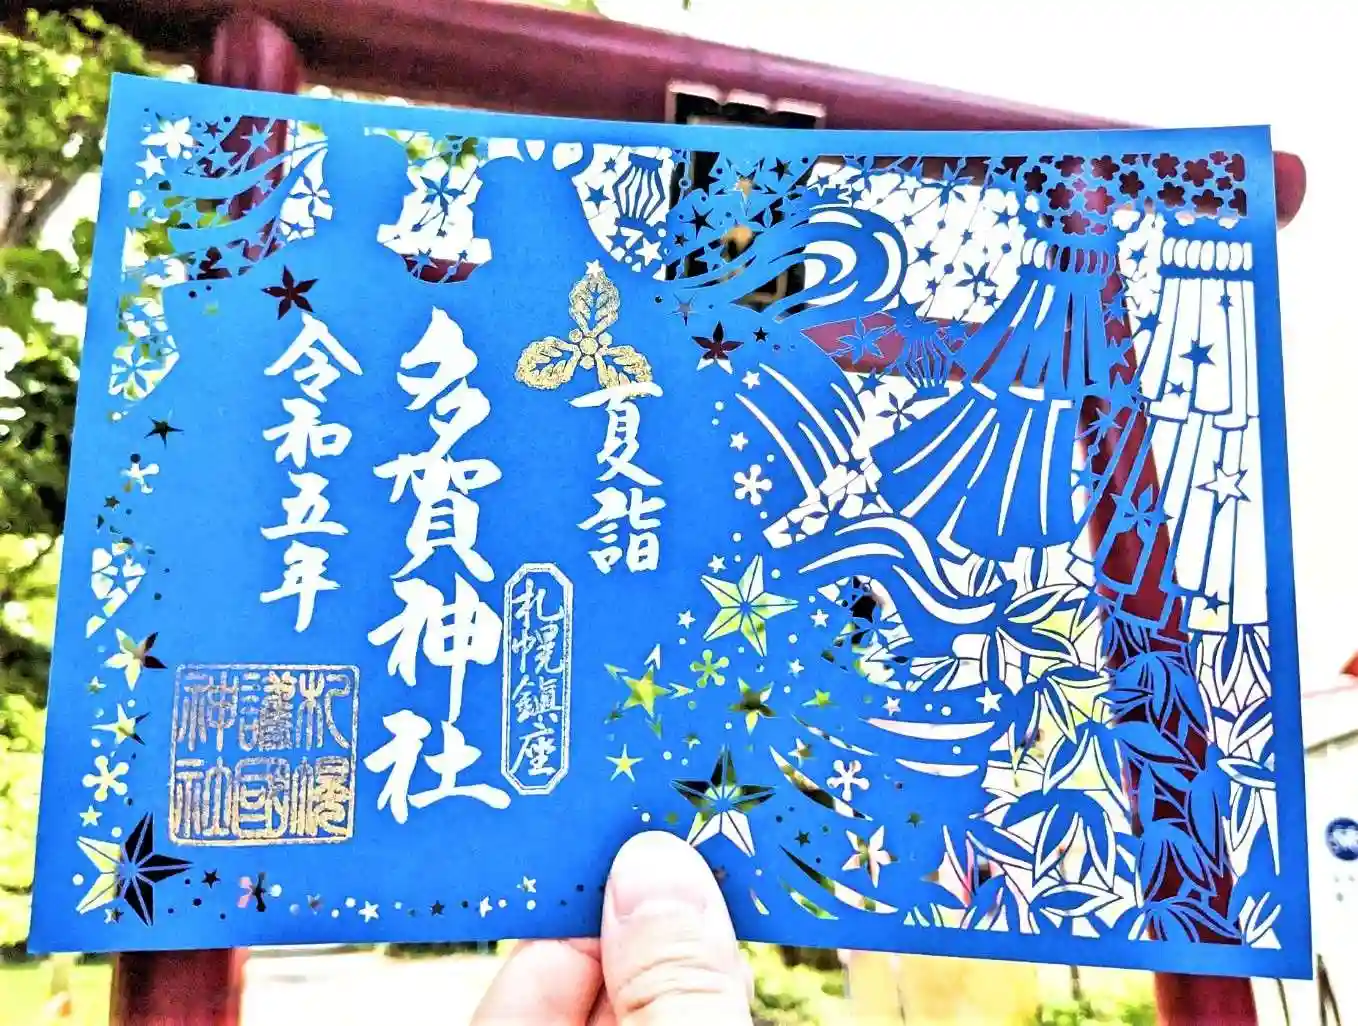 夏詣
札幌鎮座
多賀神社
令和五年
札幌
護國
神社